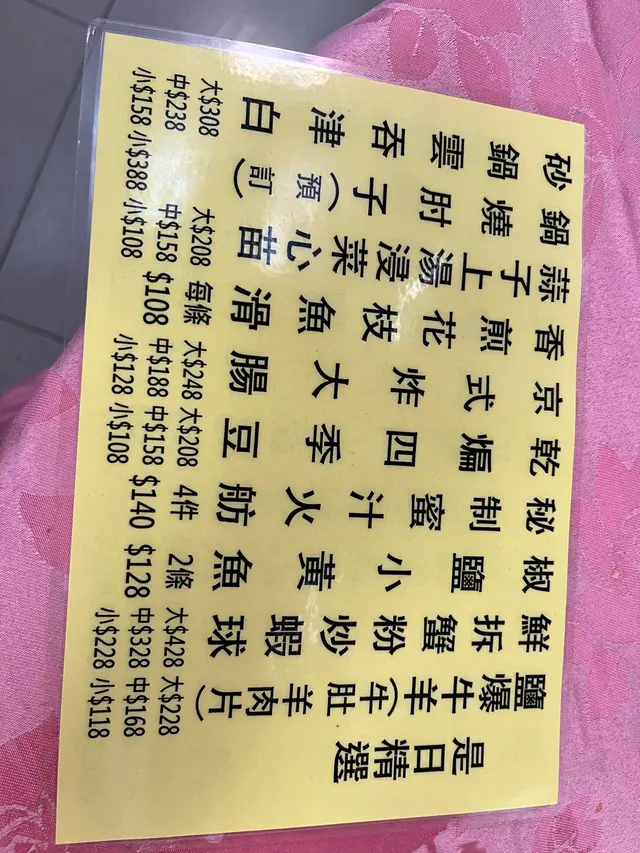 是日精選
鹽爆牛羊(牛肚羊肉片)
大$228
中$168
小$118
鮮拆蟹粉炒蝦球
大$428
中$328
小$228
椒鹽小黃魚
2條
$128
秘制蜜汁火舫
4件
$140
乾煸四季豆
大$208
中$158
小$108
京式炸大腸
大$248
中$188
小$128
香煎花枝魚滑
每條
$108
蒜子上湯浸菜心苗
大$208
中$158
小$108
鍋燒肘子(預訂)
小$388
砂鍋雲吞津白
大$308
中$238
小$158